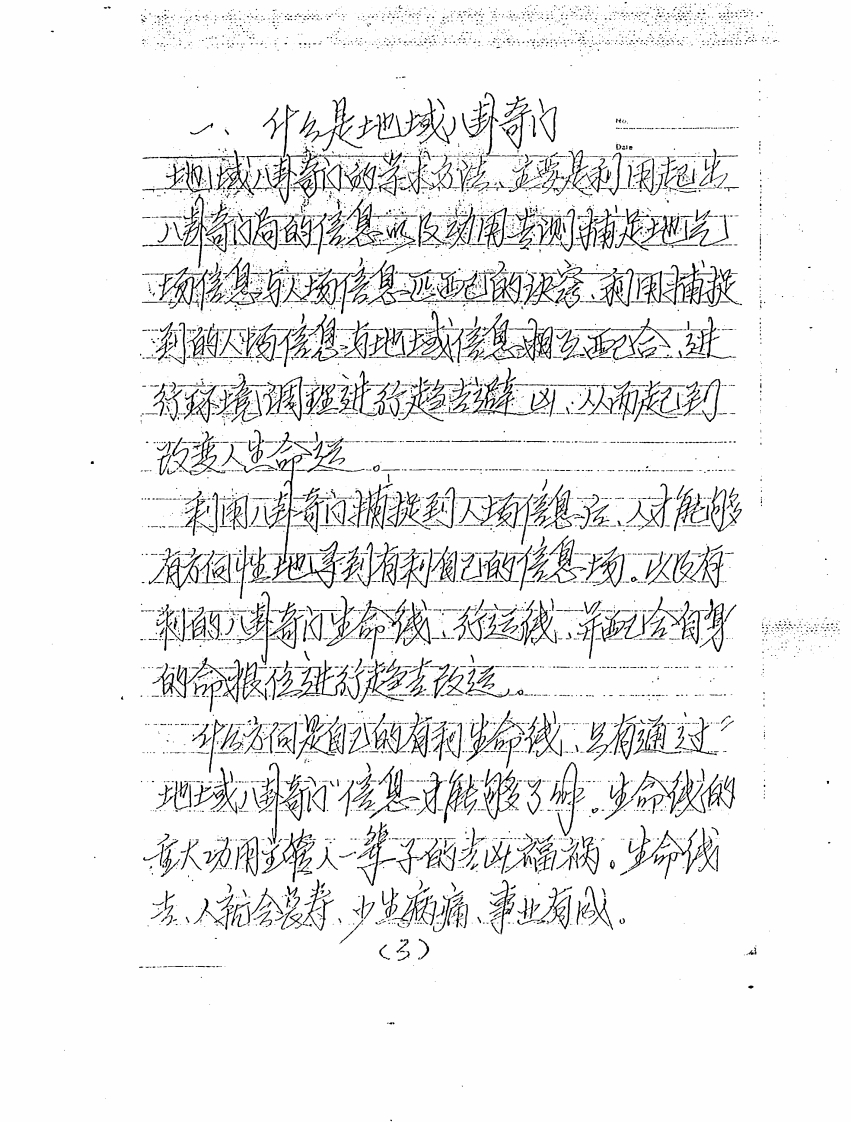 一、什么是地域八卦奇门
No.
Date
地域八卦奇门的学术方法、主要是利用起出
八卦奇门局的信息以及动用法则捕捉地气
场信息与人场信息匹配的诀窍、利用捕捉
到的人场信息与地域信息相互配合、进
行环境调理进行趋吉避凶、从而起到
改变人生命运。
利用八卦奇门捕捉到人场信息后、人才能够
有方向性地寻到有利自己的信息场。以及有
利的八卦奇门生命线、行运线、并配合自身
的命根位进行趋吉改运。
什么方向是自己的有利生命线、只有通过“
地域八卦奇门”信息才能够了解。生命线的
重大功用主管人一辈子的吉凶福祸。生命线
吉、人就会长寿、少生病痛、事业有成。
(3)